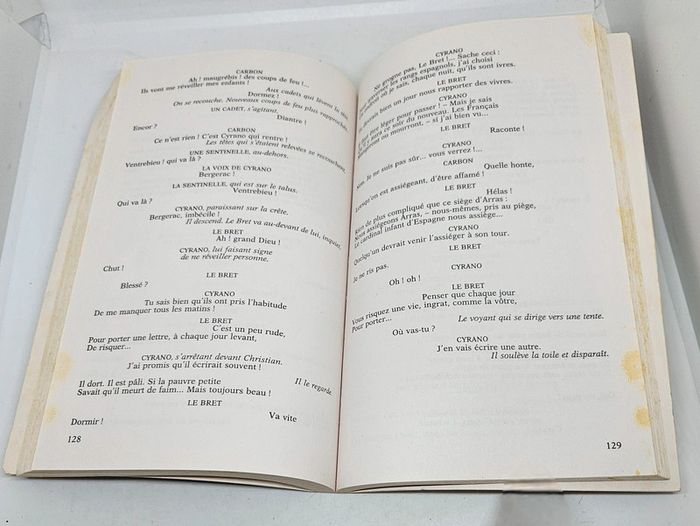 CARBON
Ah ! maugrébis ! des coups de feu !...
Ils vont me réveiller mes enfants !
Aux cadets qui lèvent la tête
Dormez !
On se recouche. Nouveaux coups de feu plus rapprochés.
UN CADET, s'agitant.
Diantre !
Encor ?
CARBON
Ce n'est rien ! C'est Cyrano qui rentre !
Les têtes qui s'étaient relevées se recouchent.
UNE SENTINELLE, au-dehors.
Ventrebieu ! qui va là ?
LA VOIX DE CYRANO
Bergerac !
LA SENTINELLE, qui est sur le talus.
Ventrebieu !
Qui va là ?
CYRANO, paraissant sur la crête.
Bergerac, imbécile !
Il descend. Le Bret va au-devant de lui, inquiet.
LE BRET
Ah ! grand Dieu !
CYRANO, lui faisant signe
de ne réveiller personne.
Chut !
LE BRET
Blessé ?
CYRANO
Tu sais bien qu'ils ont pris l'habitude
De me manquer tous les matins !
LE BRET
C'est un peu rude,
Pour porter une lettre, à chaque jour levant,
De risquer...
CYRANO, s'arrêtant devant Christian.
J'ai promis qu'il écrirait souvent !
Il le regarde.
Il dort. Il est pâli. Si la pauvre petite
Savait qu'il meurt de faim... Mais toujours beau !
LE BRET
Va vite
Dormir !
128
CYRANO
Ne grogne pas, Le Bret !... Sache ceci :
les rangs espagnols, j'ai choisi
où je sais, chaque nuit, qu'ils sont ivres.
LE BRET
devrais bien un jour nous rapporter des vivres.
CYRANO
Il faut être léger pour passer ! – Mais je sais
Qu'il y aura ce soir du nouveau. Les Français
Mangeront ou mourront, – si j'ai bien vu...
LE BRET
Raconte !
CYRANO
Non. Je ne suis pas sûr... vous verrez !...
CARBON
Quelle honte,
Lorsqu'on est assiégeant, d'être affamé !
LE BRET
Hélas !
Rien de plus compliqué que ce siège d'Arras :
Nous assiégeons Arras, – nous-mêmes, pris au piège,
Le cardinal infant d'Espagne nous assiège...
CYRANO
Quelqu'un devrait venir l'assiéger à son tour.
LE BRET
Je ne ris pas.
CYRANO
Oh ! oh !
LE BRET
Penser que chaque jour
Vous risquez une vie, ingrat, comme la vôtre,
Pour porter...
Le voyant qui se dirige vers une tente.
Où vas-tu ?
CYRANO
J'en vais écrire une autre.
Il soulève la toile et disparaît.
129